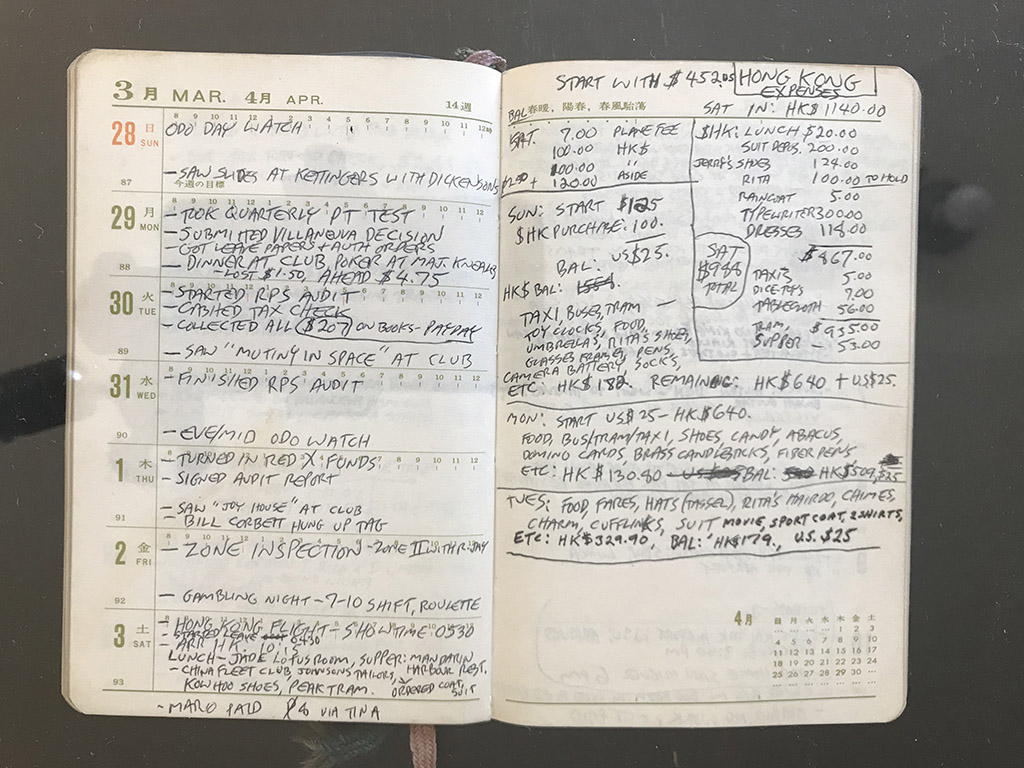 3月 MAR. 4月 APR. 14週
28 日 SUN
8 9 10 11 12 1 2 3 4 5 6 7 8 9 10 11 12時
ODO DAY WATCH
- SAW SLIDES AT KETTINGERS WITH DICKENSONS
87 今週の目標
29 月 MON
- TOOK QUARTERLY PT TEST
- SUBMITTED VILLANEUVA DECISION
- GOT LEAVE PAPERS + AUTH ORDERS
88 - DINNER AT CLUB, POKER AT MAJ. KNEALES
- LOST $1.50, AHEAD $4.75
30 火 TUE
- STARTED RPS AUDIT
- CASHED TAX CHECK
- COLLECTED ALL $207 ON BOOKS - PAYDAY
89 - SAW "MUTINY IN SPACE" AT CLUB
31 水 WED
- FINISHED RPS AUDIT
90 - EVE/MID ODO WATCH
1 木 THU
- TURNED IN RED X FUNDS
- SIGNED AUDIT REPORT
91 - SAW "JOY HOUSE" AT CLUB
- BILL CORBETT HUNG UP TAG
2 金 FRI
- ZONE INSPECTION - ZONE II WITH R. JAY
92 - GAMBLING NIGHT - 7-10 SHIFT, ROULETTE
3 土 SAT
- HONG KONG FLIGHT - SHOWTIME: 0530
- STARTED LEAVE 0430
- ARR HK: 1015
LUNCH - JADE LOTUS ROOM, SUPPER: MANDARIN
- CHINA FLEET CLUB, JOHNSONS TAILORS, HARBOUR REST.
93 KOW HOO SHOES, PEAK TRAM. ORDERED COAT, SUIT
- MARO PAID $6 VIA TINA
START WITH $452.05 HONG KONG EXPENSES
春暖, 陽春, 春風駘蕩
BAL
SAT. 7.00 PLANE FEE
100.00 HK$
100.00 "
+ 120.00 ASIDE
SUN: START $125
$HK PURCHASE: 100.
BAL: US$25.
HK$ BAL:
TAXI, BUSES, TRAM
TOY CLOCKS, FOOD,
UMBRELLAS, RITA'S SHOES,
GLASSES FRAMES, PENS,
CAMERA BATTERY, SOCKS,
ETC: HK$182. REMAINING: HK$640 + US$25.
SAT IN: HK$1140.00
$HK: LUNCH $20.00
SUIT DEPOS. 200.00
JERRY'S SHOES 124.00
RITA 100.00 TO HOLD
RAINCOAT 5.00
TYPEWRITER 300.00
DRESSES 118.00
$867.00
SAT $988 TOTAL
TAXIS 5.00
7.00
TABLECLOTH 56.00
$935.00
TRAM, SUPPER - 53.00
MON: START US$25 - HK$640.
FOOD, BUS/TRAM/TAXI, SHOES, CANDY, ABACUS,
DOMINO CARDS, BRASS CANDLESTICKS, FIBER PENS
ETC: HK$130.80 BAL: HK$509, $25
TUES: FOOD, FARES, HATS (TASSEL), RITA'S HAIRDO, CHIMES,
CHARM, CUFFLINKS, SUIT MOVIE, SPORT COAT, 2 SHIRTS,
ETC: HK$329.90, BAL: HK$179., U.S. $25
4月 日 月 火 水 木 金 土
... ... ... ... 1 2 3
4 5 6 7 8 9 10
11 12 13 14 15 16 17
18 19 20 21 22 23 24
25 26 27 28 29 30 ...